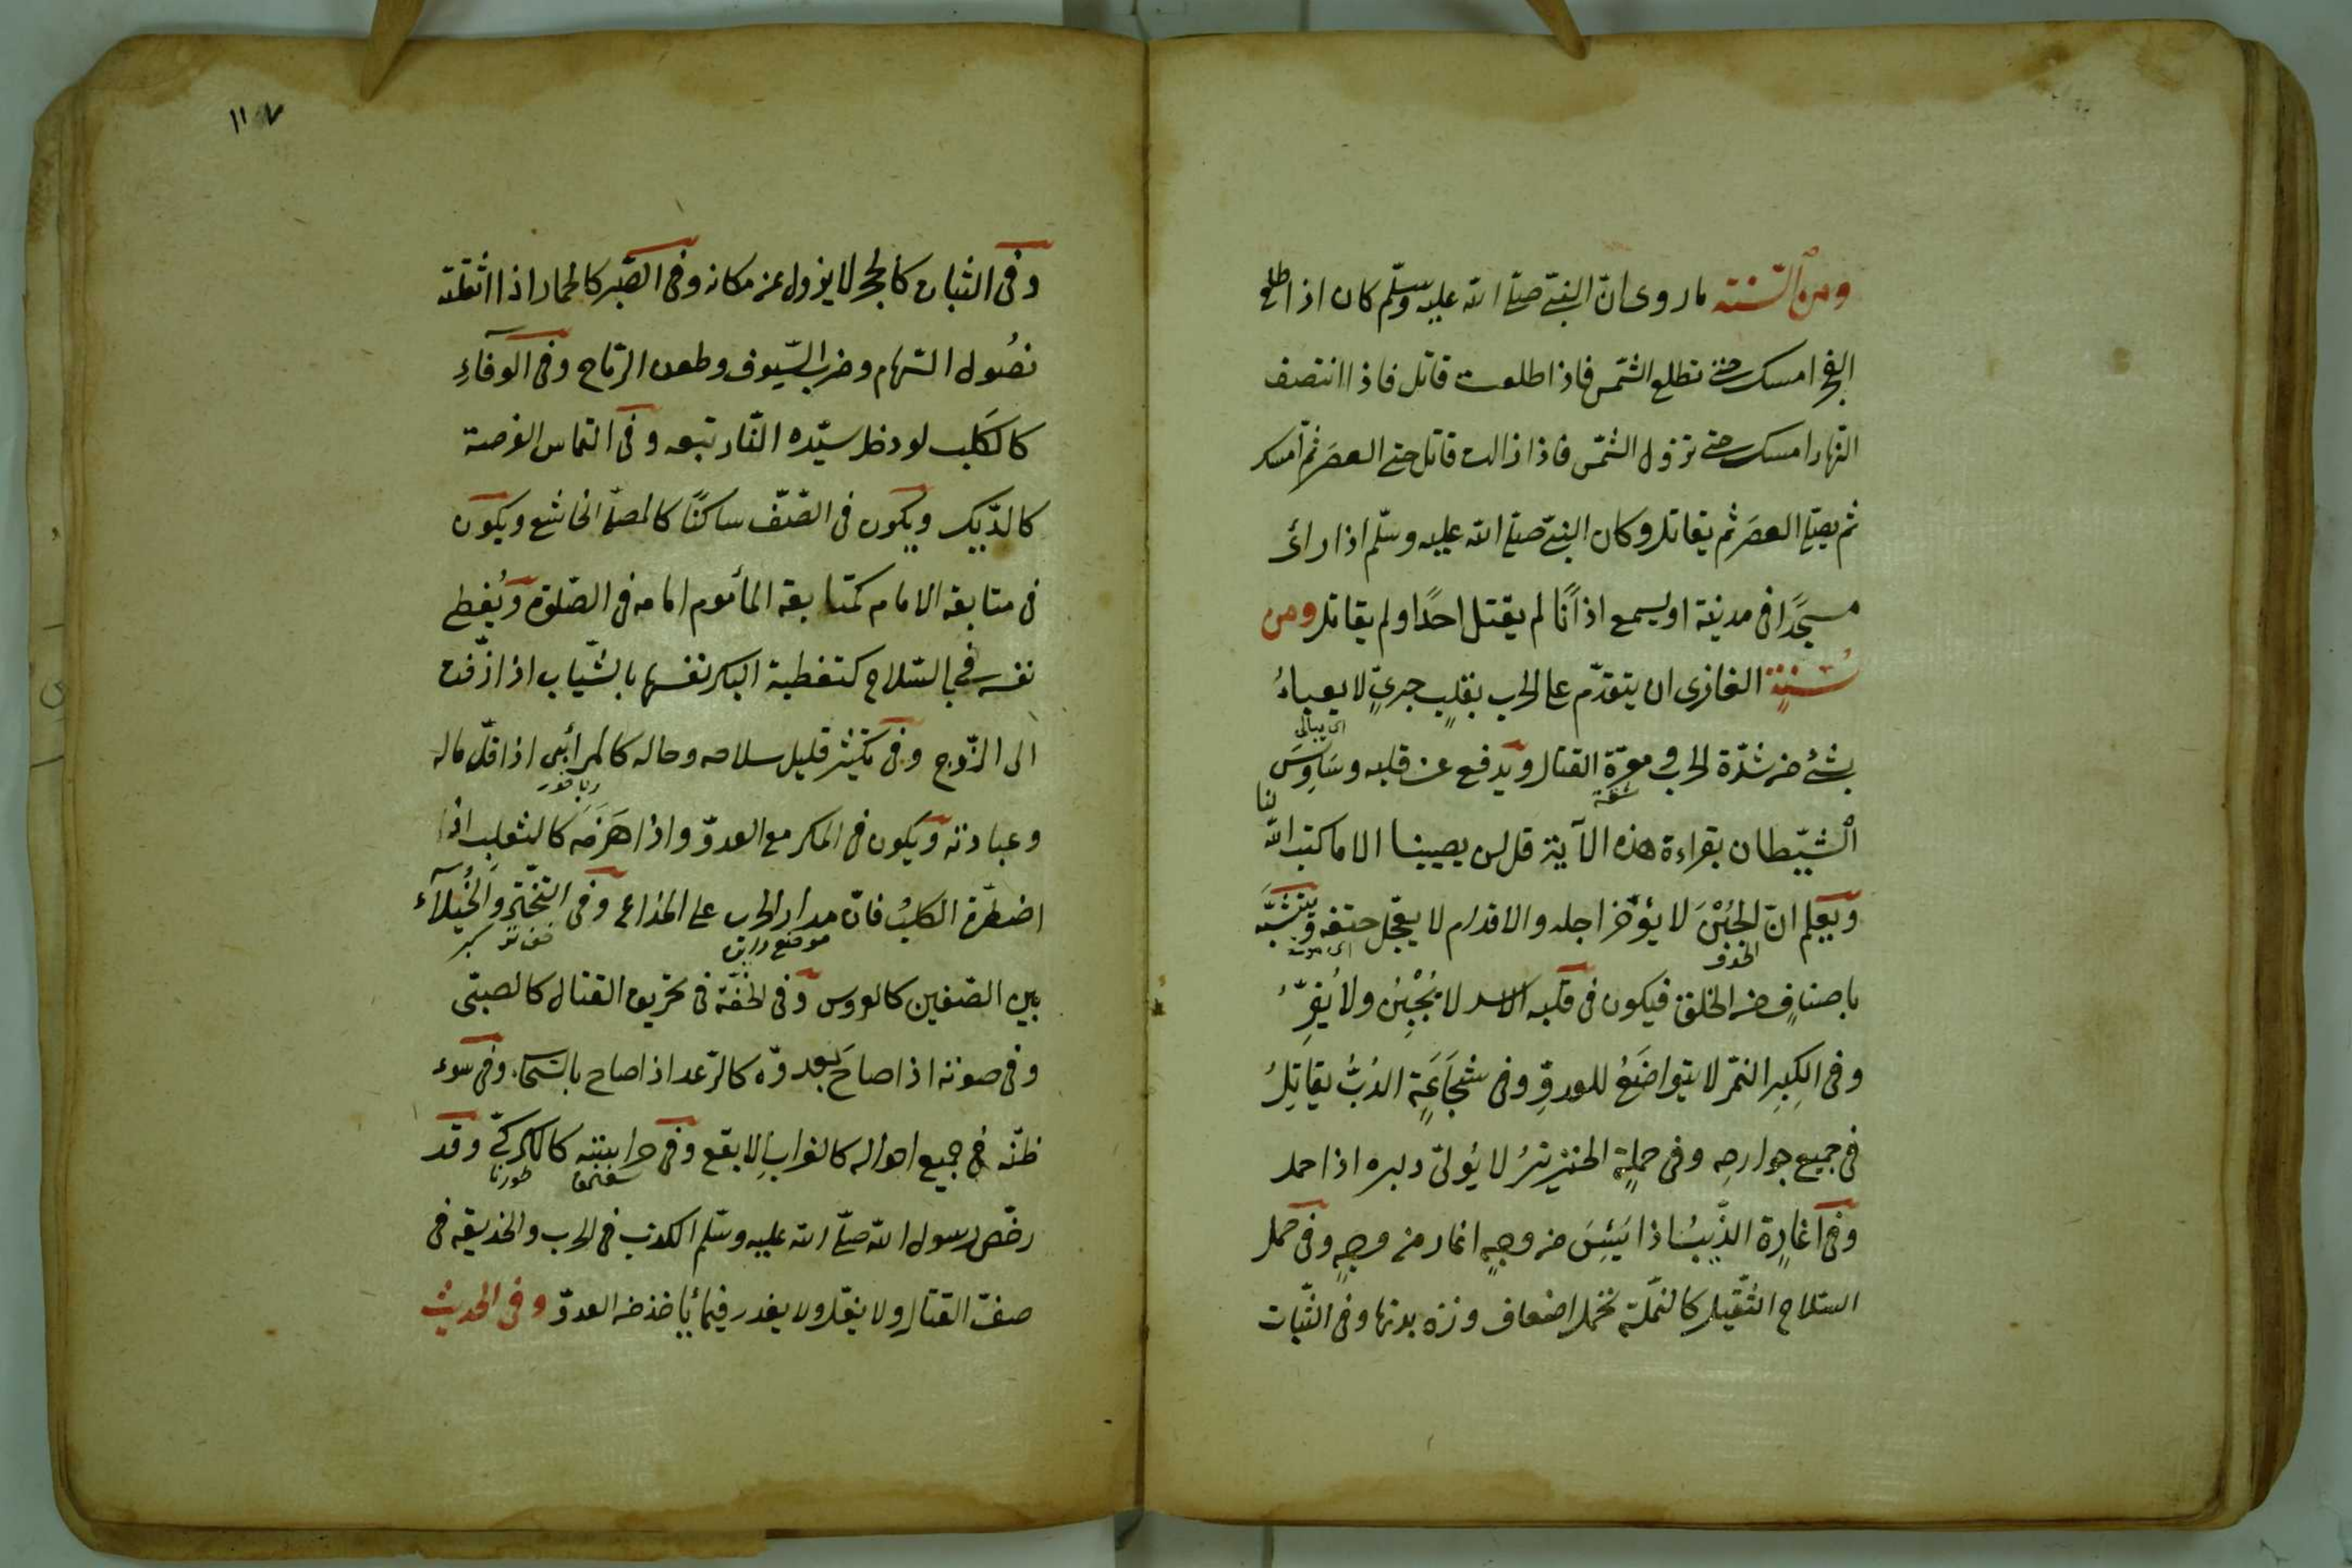 ومن السنة ما روى ان النبيّ صلّى الله عليه وسلّم كان اذا طلع
الفجر امسك حتى تطلع الشمس فاذا طلعت قاتل فاذا انتصف
النهار امسك حتى تزول الشمس فاذا زالت قاتل حتى العصر ثم امسك
ثم يصلّى العصر ثم يقاتل وكان النبيّ صلّى الله عليه وسلّم اذا رأى
مسجدًا فى مدينة او يسمع اذانًا لم يقتل احدًا ولم يقاتل ومن
سُنّة الغازى ان يتقدّم على الحرب بقلبٍ جريٍّ لا يعباءُ
اى يبالى
بشئ من شدّة الحرب و معرّة القتال ويدفع عن قلبه وساوس
مشقة
الشيطان بقراءة هذه الآية قل لن يصيبنا الا ما كتب الله لنا
ويعلم انّ الجُبْنَ لا يؤخّر اجله والاقدام لا يعجّل حتفه ويتشبّه
الخوف اى موته
باصنافٍ من الخلق فيكون فى قلبه الاسد لا يُجْبِنُ ولا يُفِرُّ
وفى الكِبِرِ النمّر لا يتواضَعُ للعدوِّ وفى شجاعَةِ الدُبُّ يقاتِلُ
فى جميع جوارحِه وفى حملةِ الخنزيرُ لا يُولّى دبره اذا حمل
وفى اغارةِ الذّيبُ اذا يَئِسَ من وجهٍ اغار من وجهٍ وفى حمل
السلاح الثّقيل كالنملة تحمل اضعاف وزن بدنها وفى الثبات
١١٧
وفى الثبات كالحجر لا يزول عن مكانه وفى الصّبر كالحمار اذا اثقلته
نصُول السّهام وضرب السّيوف وطعن الرّماح وفى الوفآءِ
كالكَلب لو دخل سيّده النّار تبعه وفى التماس الفرصة
كالدّيك ويكون فى الصّف ساكنًا كالمصلّى الخاشع ويكون
فى متابعة الامام كمتابعة المأموم امامه فى الصّلوة ويُغطى
نفسه فى بالسّلاح كتغطية البكر نفسها بالثّياب اذا زفّت
الى الزّوج وفى تكثير قليل سلاحه وحاله كالمرأئى اذا قلّ ماله
وعبادته ويكون فى المكر مع العدوّ واذا هَزَمَه كالثعلب اذا
اضطرّه الكلبُ فانّ مدار الحرب على الخداع وفى التبختر والخُيلآء
كبر
بين الصّفين كالعروس وفى الخفّة فى تحريض القتال كالصبىّ
وفى صوته اذا صاحَ بعدوّه كالرّعد اذا صاح بالسّحاب وفى سوء
ظنّه فى جميع احواله كالغراب الابقع وفى حراسته كالكركىّ وقد
طورنا
رخّص رسول الله صلّى الله عليه وسلّم الكذب فى الحرب والخديعة فى
صفّ القتال ولا يغلّ ولا يغدر فيما يأخذ من العدوّ وفى الحديث